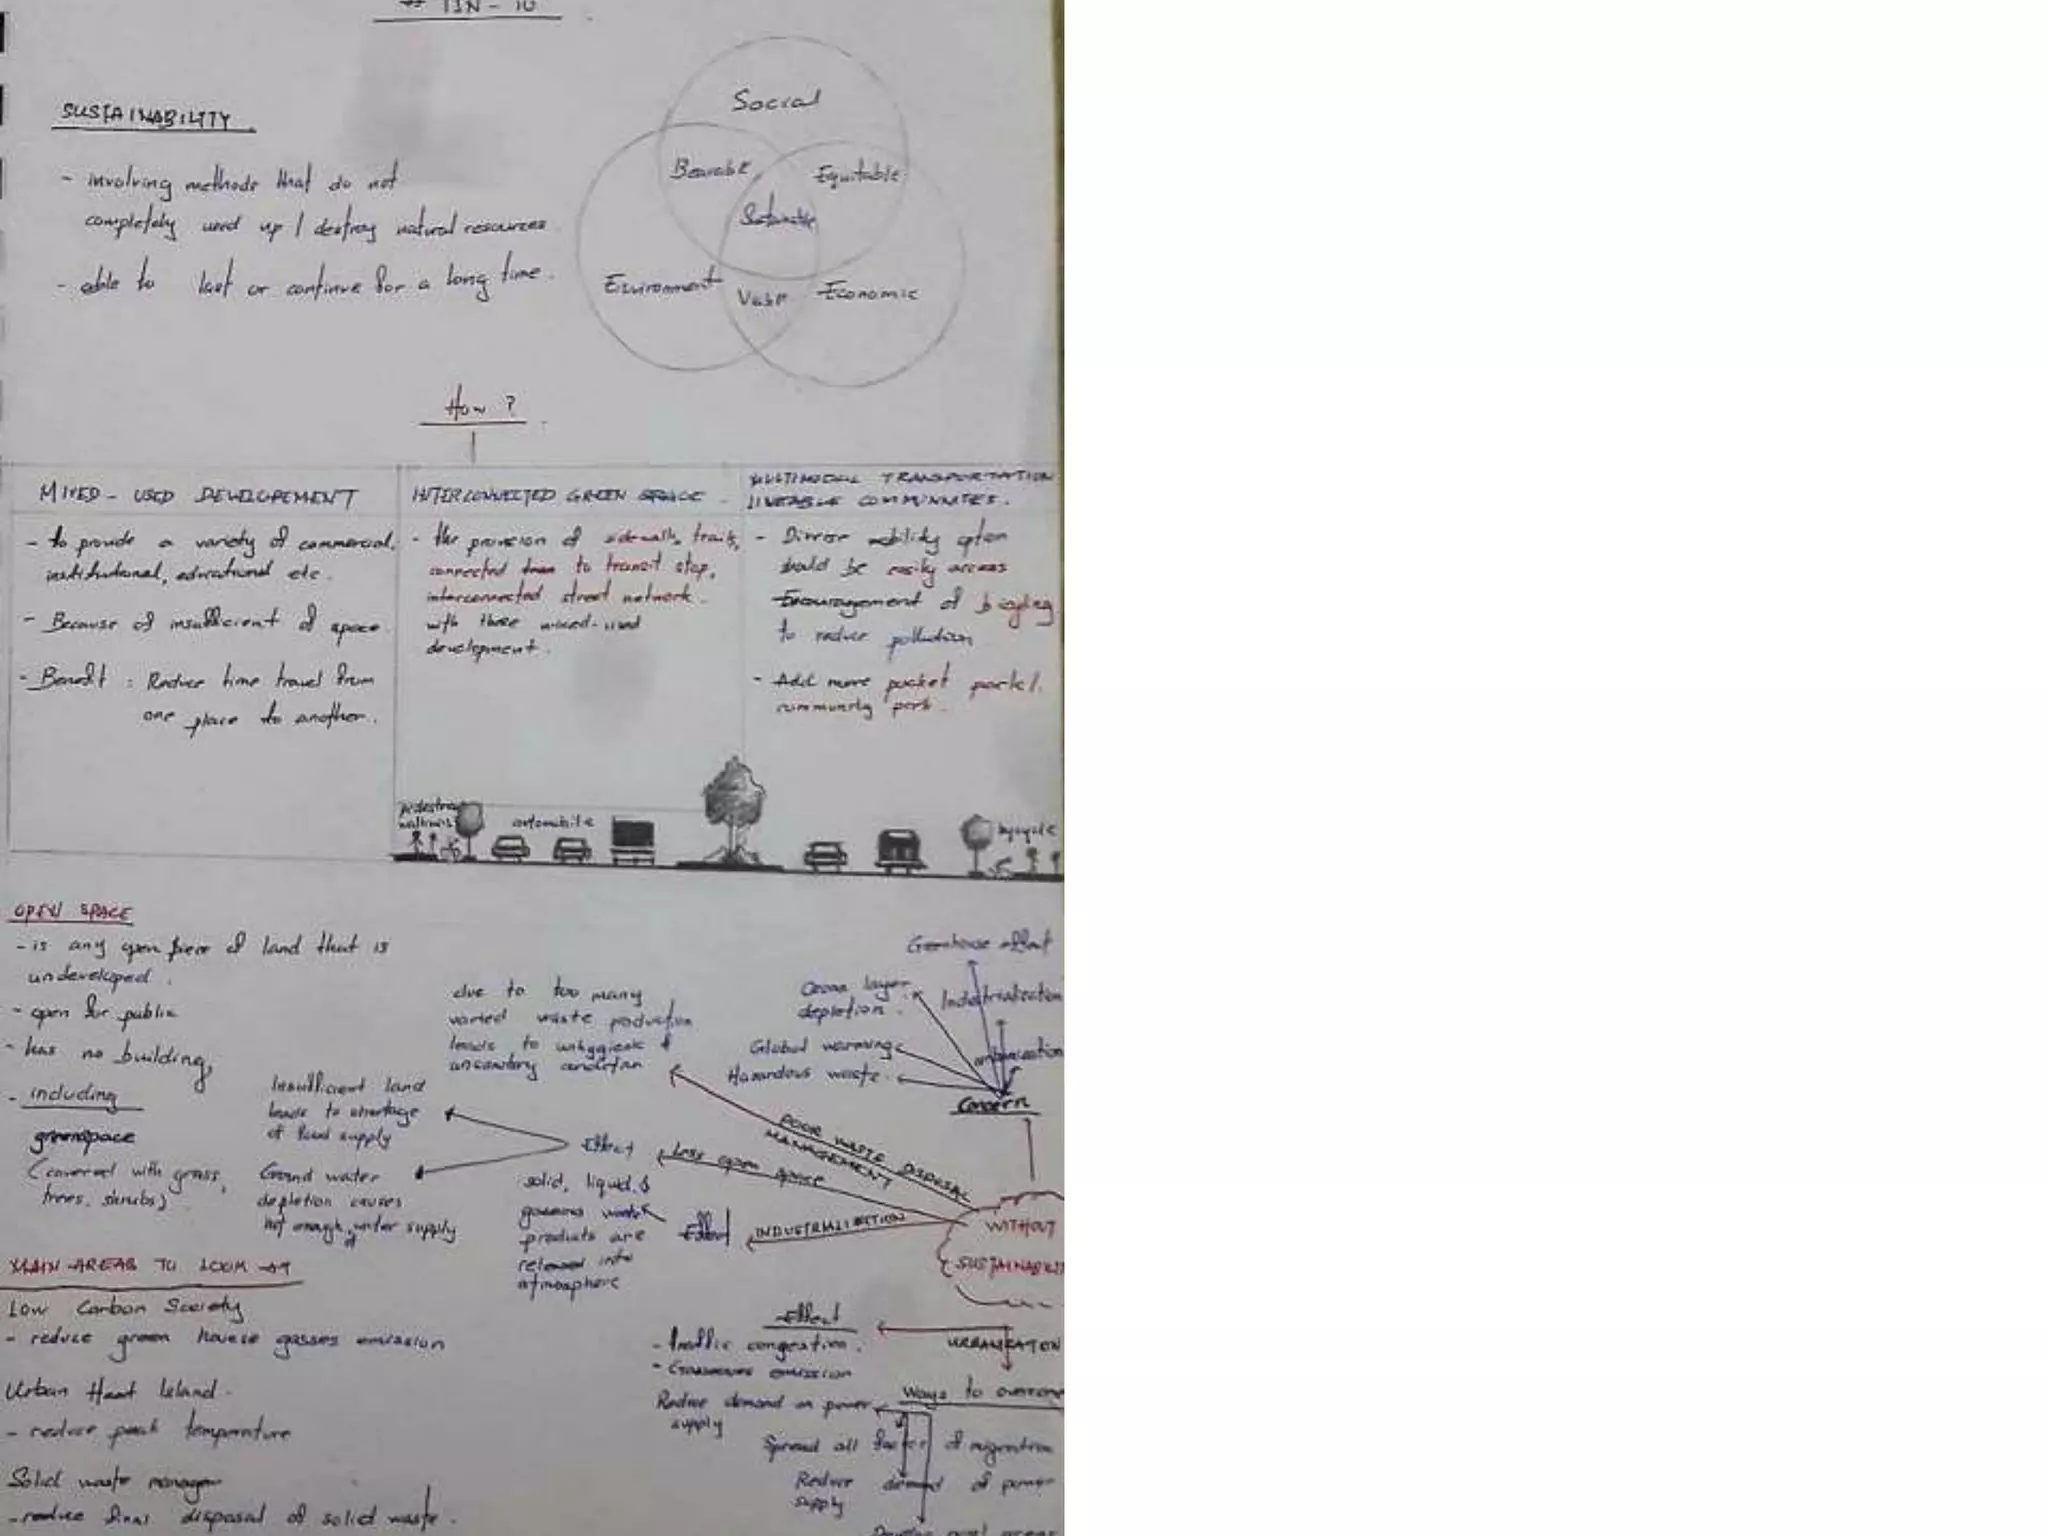 SUSTAINABILITY
- involving methods that do not
completely used up / destroy natural resources
- able to last or continue for a long time.
Social
Bearable
Equitable
Sustainable
Environment
Economic
How ?
MIXED - USED DEVELOPEMENT
- to provide a variety of commercial,
institutional, educational etc.
- Because of insufficient of space
- Benefit : Reduce time travel from
one place to another.
INTERCONNECTED GREEN SPACE
- the provision of sidewalk, trails,
connected them to transit stop,
interconnected street network.
with those mixed-used
development.
MULTIMODAL TRANSPORTATION
LIVEABLE COMMUNITIES.
- Diverse mobility option
should be easily access
Encouragement of bicycling
to reduce pollution
- Add more pocket park/.
community park.
pedestrian
automobile
bycycle
OPEN SPACE
- is any open piece of land that is
undeveloped.
- open for public
- has no building,
- including
greenspace
(covered with grass,
trees, shrubs)
MAIN AREAS TO LOOK AT
Low Carbon Society
- reduce green house gasses emission
Urban Heat Island.
- reduce peak temperature
Solid waste manager
- reduce final disposal of solid waste.
Greenhouse effect
Ozone layer
depletion.
Industrialization
Global warming
Hazardous waste.
Concern
due to too many
varied waste production
leads to unhygienic &
unsanitary condition
POOR WASTE DISPOSAL
MANAGEMENT
Insufficient land
leads to shortage
of food supply
Effect
Less open space
Ground water
depletion causes
not enough of water supply
solid, liquid, &
gaseous waste
products are
released into
atmosphere
Effect
INDUSTRIALIZATION
WITHOUT
SUSTAINABILIT
Effect
- traffic congestion.
- Gaseous emission
URBANIZATION
Ways to overcome
Reduce demand on power
supply
Spread all factor of migration
Reduce demand of power
supply